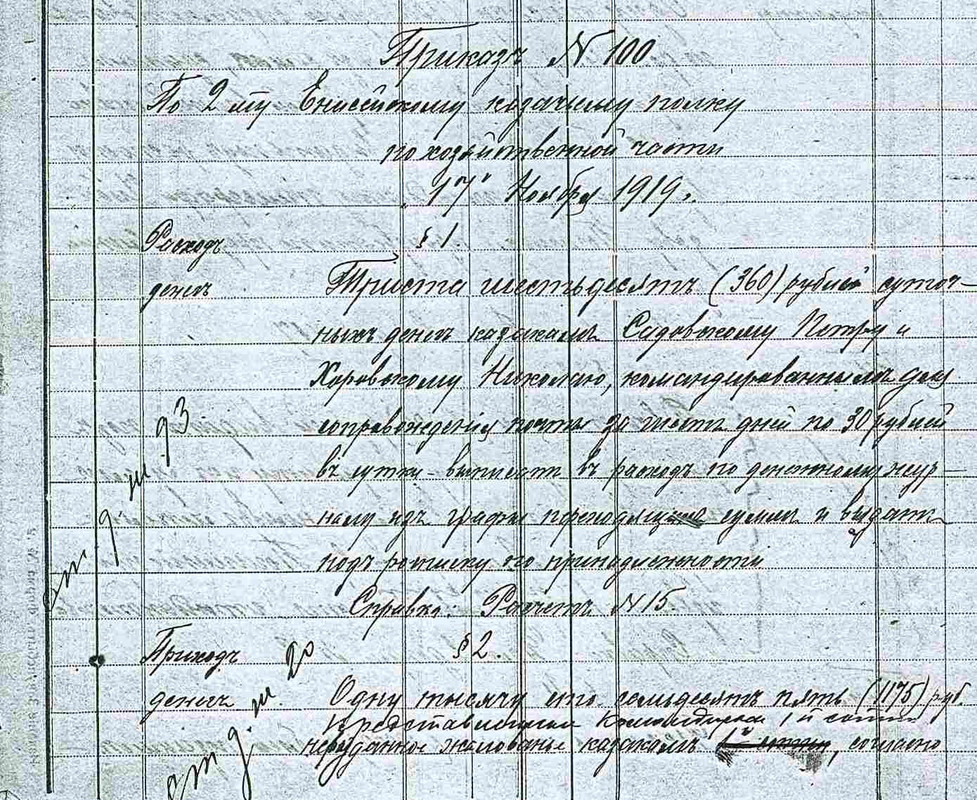 Приказъ N 100
По 2 му Енисейскому казачьему полку
по хозяйственной части
"17" Ноября 1919 г.
Расходъ
денегъ
§ 1.
Триста шестьдесятъ (360) рублей суточ-
ныхъ денегъ казакамъ Садовскому Петру и
Хоровскому Николаю, командированнымъ для
сопровожденія почты за шесть дней по 30 рублей
въ сутки - выписать въ расходъ по денежному жур-
налу изъ графы переходящихъ суммъ и выдать
подъ росписку по принадлежности
Справка: Расчетъ N 15.
ст. 9 ж 93
Приходъ
денегъ
§ 2.
Одну тысячу сто семьдесятъ пять (1175) руб.
представленныя Командиромъ 1й сотни
невыданное жалованье казакамъ 1й сотни, согласно
ст. д. ж 20